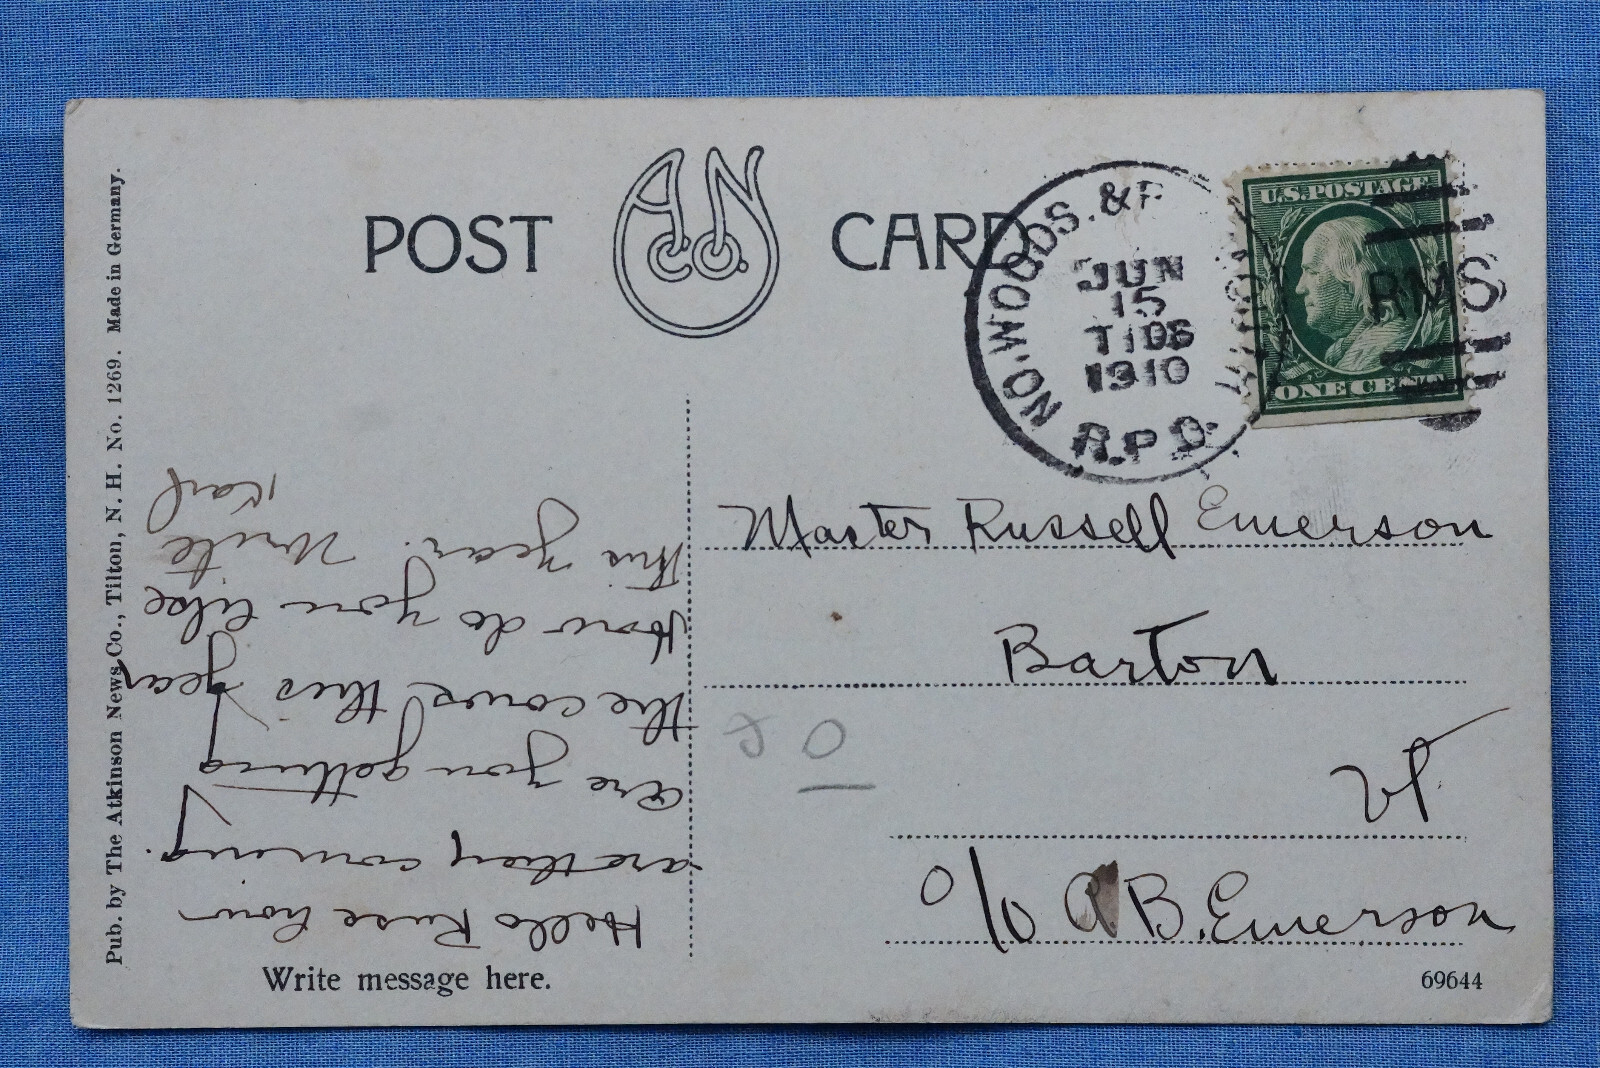 POST CARD
A N Co.
NO. WOODS. &
JUN
15
1910
R.P.O.
U.S. POSTAGE
ONE CENT
RMS
Master Russell Emerson
Barton
Vt
c/o A B. Emerson
Hello Russ how
are they coming.
are you getting
the cows this year
How do you like
this year. Write
Karl
Write message here.
Pub. by The Atkinson News Co., Tilton, N. H. No. 1269. Made in Germany.
69644